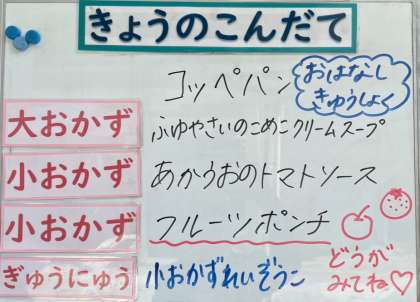 きょうのこんだて
コッペパン
おはなし
きゅうしょく
大おかず ふゆやさいのこめこクリームスープ
小おかず あかうおのトマトソース
小おかず フルーツポンチ
ぎゅうにゅう 小おかずれいぞうこ
どうが
みてね♡